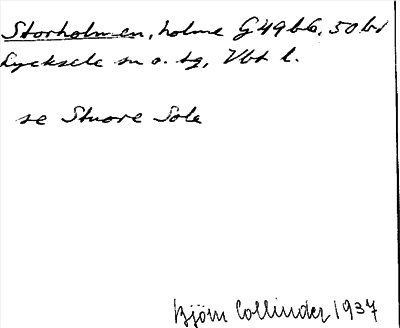 Storholmen, holme G49b6, 50 bd
Lycksele sn o. tg, Vbt l.
se Stuore Sole
Björn Collinder 1937